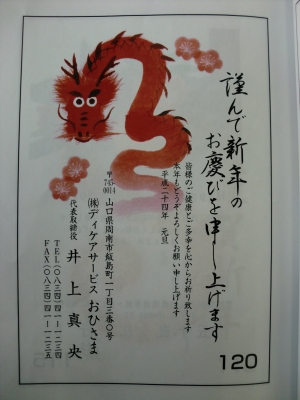 謹んで新年の
お慶びを申し上げます
皆様のご健康とご多幸を心からお祈り致します
本年もどうぞよろしくお願い申し上げます
平成二十四年 元旦
〒745-0014
山口県周南市飯島町一丁目三番〇号
㈱ディケアサービス おひさま
代表取締役 井上真央
TEL(〇八三四)四一-一二三四
FAX(〇八三四)四一-一二三五
120